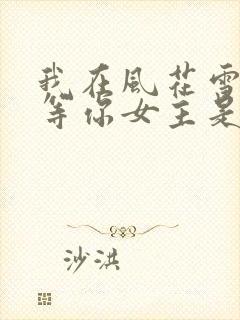 我在風花雪
等你女主是
沙洪